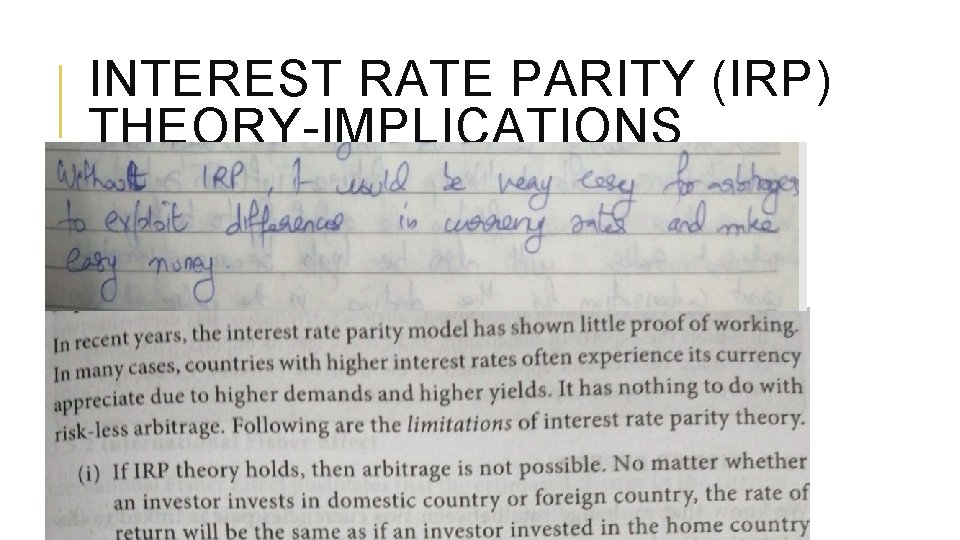 INTEREST RATE PARITY (IRP)
THEORY-IMPLICATIONS
Without IRP, it would be very easy for arbitrager
to exploit difference in currency rates and mke
easy money.
In recent years, the interest rate parity model has shown little proof of working.
In many cases, countries with higher interest rates often experience its currency
appreciate due to higher demands and higher yields. It has nothing to do with
risk-less arbitrage. Following are the limitations of interest rate parity theory.
(i) If IRP theory holds, then arbitrage is not possible. No matter whether
an investor invests in domestic country or foreign country, the rate of
return will be the same as if an investor invested in the home country